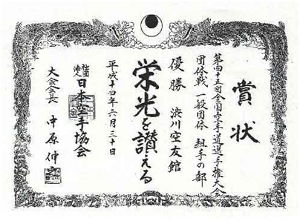 賞状
第四十五回全国空手道選手権大会
団体戦 一般団体 組手の部
優勝 渋川空友館
栄光を讃える
平成十四年六月三十日
日本空手協会
大会会長 中原伸之